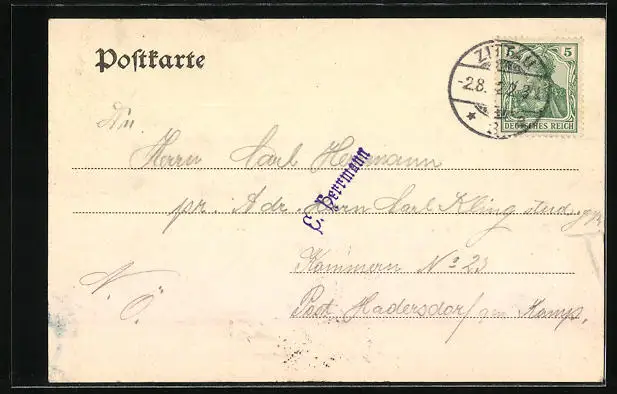 Postkarte
ZITTAU
5
DEUTSCHES REICH
An
Herrn Karl Herrmann
E. Herrmann
pr. Adr. Herrn Karl Kling stud.
Kammern No 23
N. Ö.
Post Hadersdorf am Kamp,